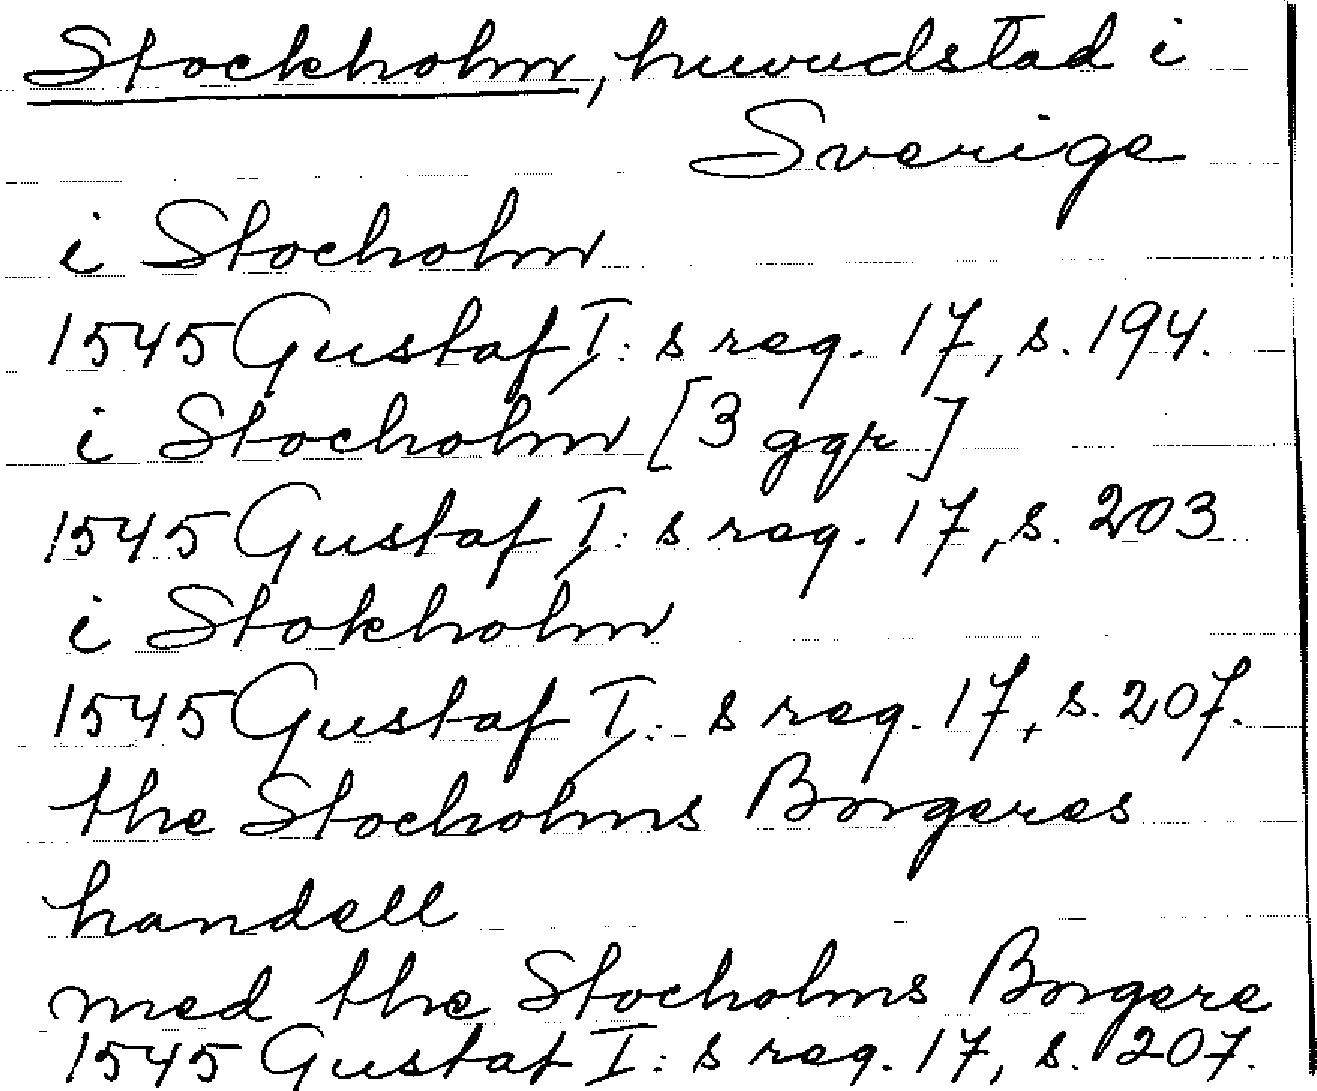 Stockholm, huvudstad i
Sverige
i Stocholm
1545 Gustaf I: s reg. 17, s. 194.
i Stocholm [3 ggr]
1545 Gustaf I: s reg. 17, s. 203
i Stokholm
1545 Gustaf I: s reg. 17, s. 207.
the Stocholms Borgeres
handell
med the Stocholms Borgere
1545 Gustaf I: s reg. 17, s. 207.